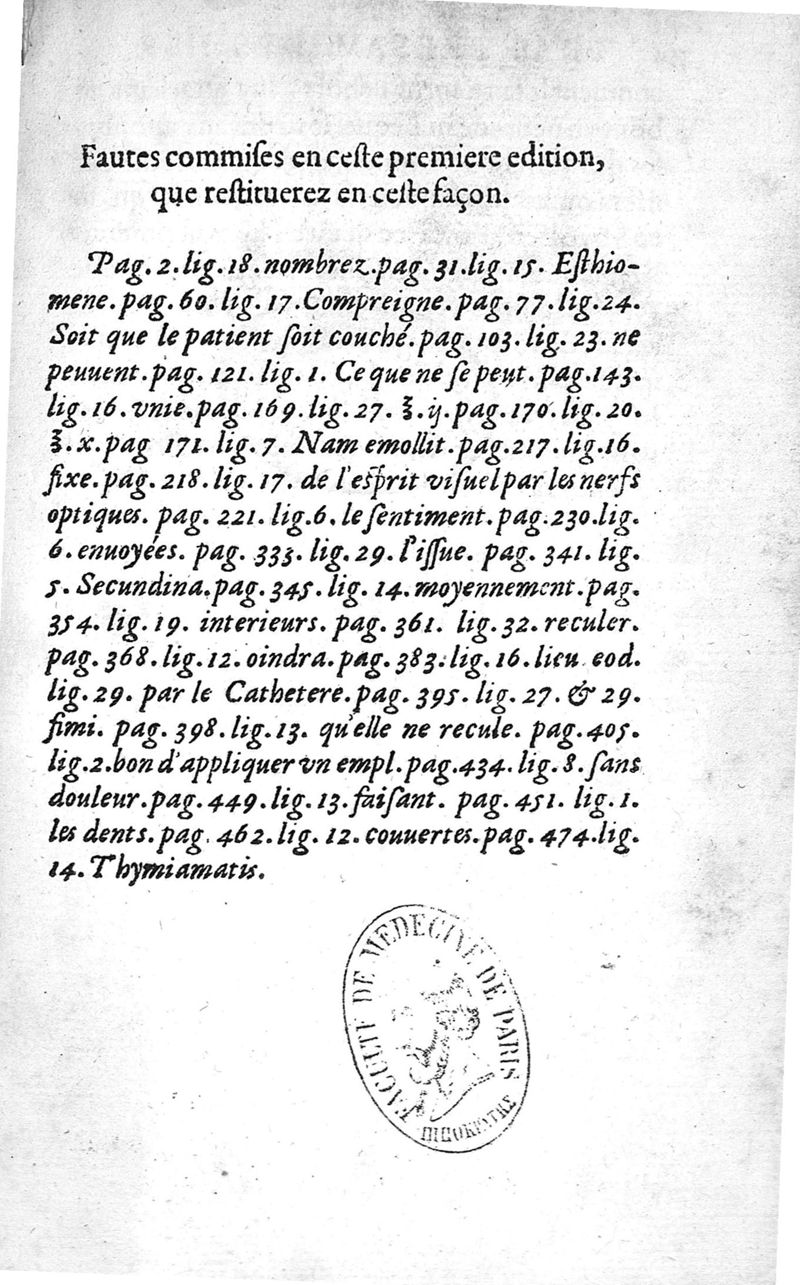 Fautes commiſes en ceſte premiere edition,
que reſtituerez en ceſte façon.
Pag. 2. lig. 18. nombrez. pag. 31. lig. 15. Eſthio-
mene. pag. 60. lig. 17. Compreigne. pag. 77. lig. 24.
Soit que le patient ſoit couché. pag. 103. lig. 23. ne
peuuent. pag. 121. lig. 1. Ce que ne ſe peut. pag. 143.
lig. 16. vnie. pag. 169. lig. 27. ℥. ij. pag. 170. lig. 20.
℥. x. pag 171. lig. 7. Nam emollit. pag. 217. lig. 16.
fixe. pag. 218. lig. 17. de l'eſprit viſuel par les nerfs
optiques. pag. 221. lig. 6. le ſentiment. pag. 230. lig.
6. enuoyées. pag. 333. lig. 29. l'iſſue. pag. 341. lig.
5. Secundina. pag. 345. lig. 14. moyennement. pag.
354. lig. 19. interieurs. pag. 361. lig. 32. reculer.
pag. 368. lig. 12. oindra. pag. 383. lig. 16. lieu eod.
lig. 29. par le Cathetere. pag. 395. lig. 27. & 29.
fimi. pag. 398. lig. 13. qu'elle ne recule. pag. 405.
lig. 2. bon d'appliquer vn empl. pag. 434. lig. 8. ſans
douleur. pag. 449. lig. 13. faiſant. pag. 451. lig. 1.
les dents. pag. 462. lig. 12. couuertes. pag. 474. lig.
14. Thymiamatis.
FACULTÉ DE MEDECINE DE PARIS